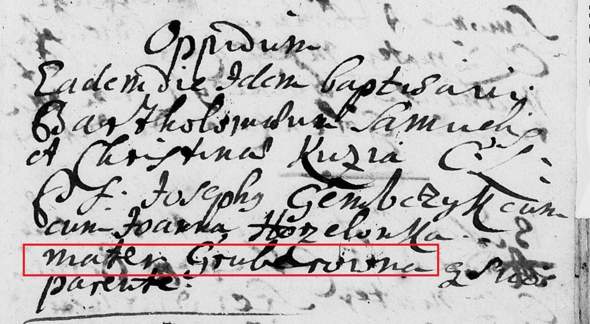 Oppidum
Eadem die Idem baptisavi
Bartholomæum Samuelis
et Christinæ Kuzia C. L.
P. f. Josephq Gembczyk cum
cum Joanna Horzelonka
mater Gruberowna
parente: